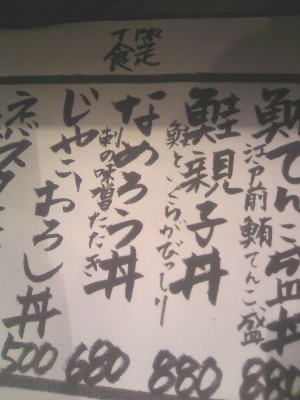 丁食限定
鮪てんこ盛丼
江戸前鮪てんこ盛
880
鮭親子丼
鮭といくらがびっしり
880
なめろう丼
刺の味噌たたき
680
じゃこおろし丼
500
ネバスタ